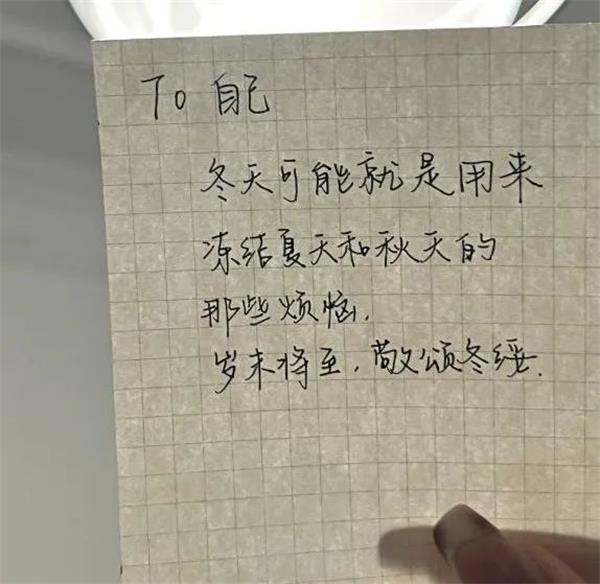 To 自己
冬天可能就是用来
冻结夏天和秋天的
那些烦恼.
岁末将至,敬颂冬绥.